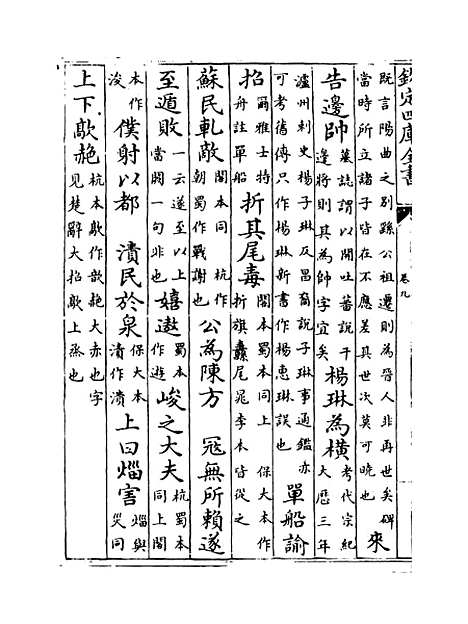 欽定四庫全書 卷九
既言陽曲之別孫公祖遷則為晉人非再世矣碑
當時所立諸子皆在不應差其世次莫可曉也
來
告邊帥
墓誌謂以開吐蕃說干
邊將則其為帥字宜矣
楊琳為橫
考代宗紀
大厯三年
瀘州刺史楊子琳反昌裔說子琳事通鑑亦
可考舊傳只作楊琳新書作楊惠琳誤也
單船諭
招
爾雅士特
舟註單船
折其尾毒
閣本蜀本同上 保大本作
折旗纛尾晁李本皆從之
蘇民軋敵
閣本同 杭作
朝蜀作戰謝也
公為陳方 冦無所賴遂
至遁敗
一云遂至以上
當闕一句非也
嬉遨
蜀本
作遊
峻之大夫
杭蜀本
同上閣
本作
浚
僕射以都 潰民於泉
保大本
作瀆
上曰害
與
災同
上下歊赩
杭本歊作歆赩大赤也字
見楚辭大招歊上烝也